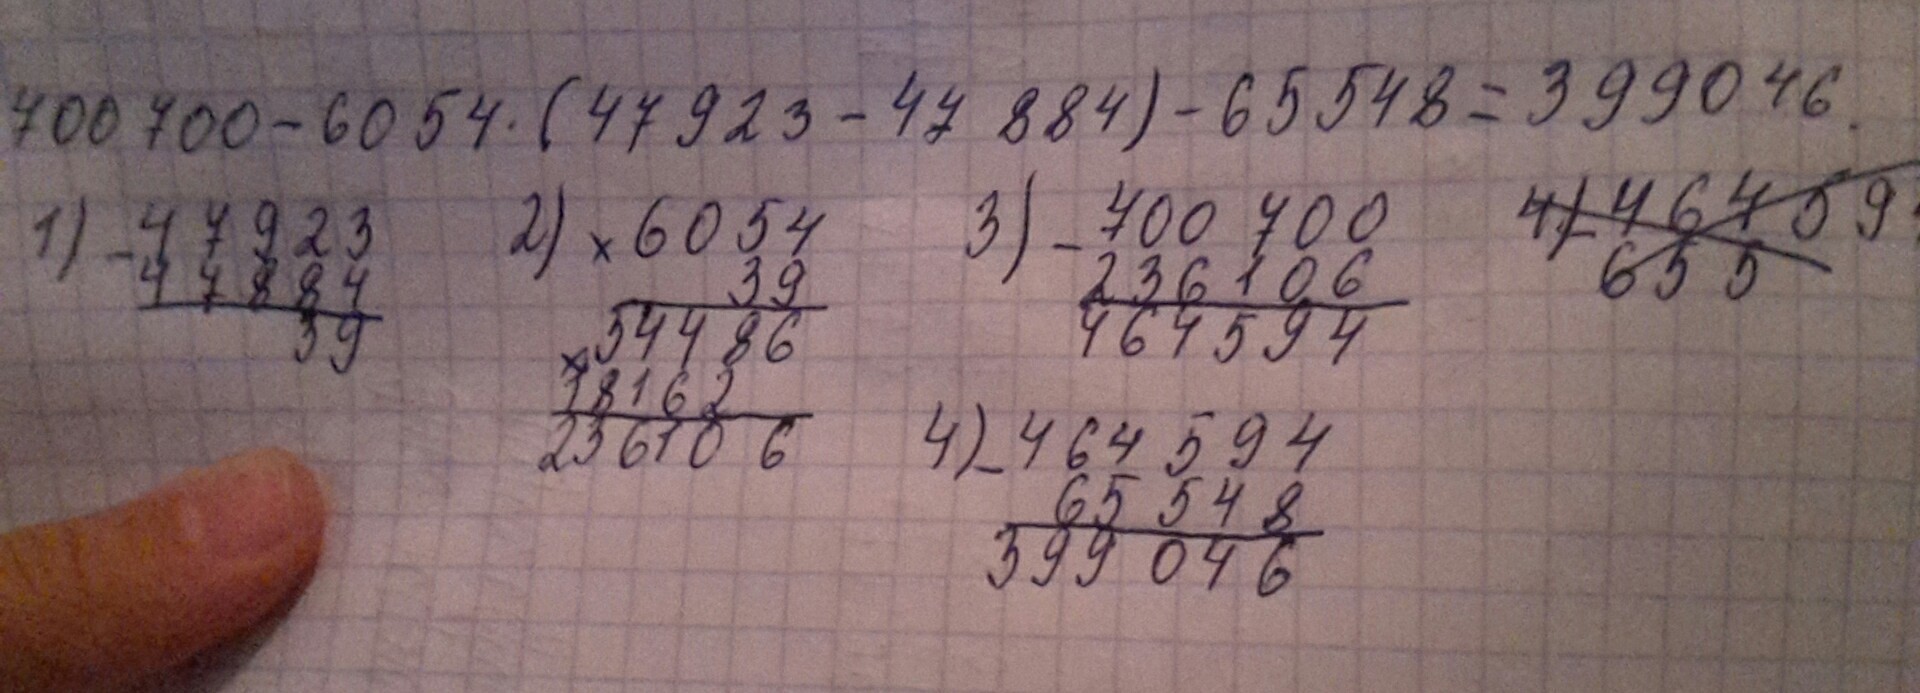 700 700 - 6054 · (47923 - 47 884) - 65548 = 399046.
1) - 47923
47884
39
2) × 6054
39
54486
× 18162
236106
3) - 700 700
236106
464594
4) - 46459
655
4) - 464 594
65 548
399 046